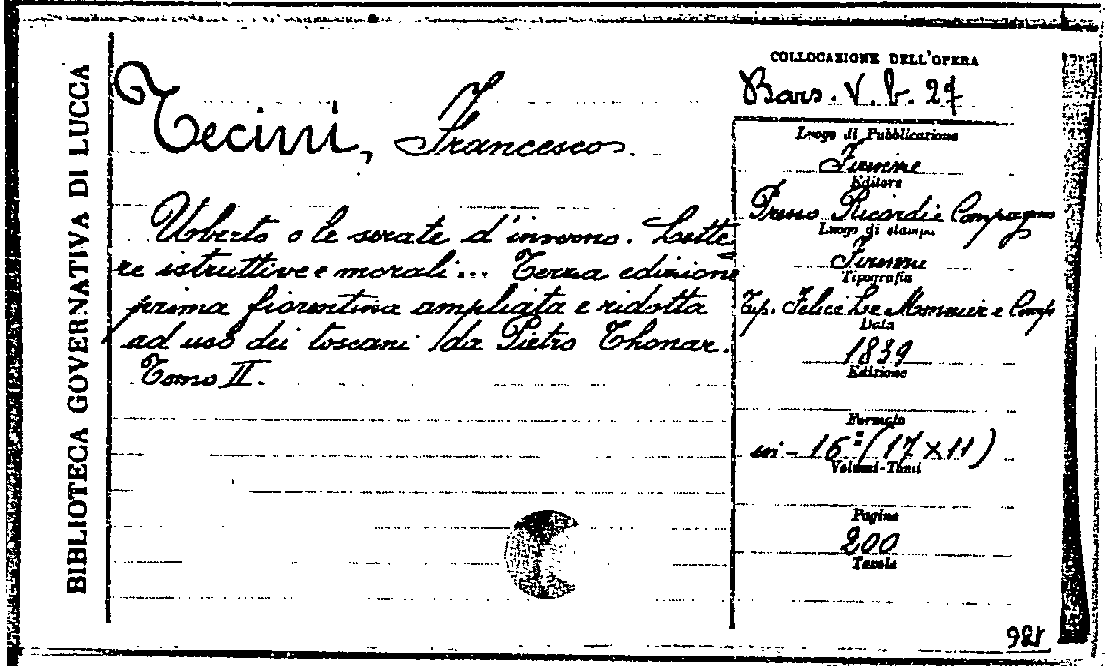 BIBLIOTECA GOVERNATIVA DI LUCCA
Tecini, Francesco.
Umberto o le serate d'inverno. Lette
re istruttive e morali... Terza edizione
prima fiorentina ampliata e ridotta
ad uso dei toscani da Pietro Thouar.
Tomo II.
COLLOCAZIONE DELL'OPERA
Bars. V. b. 27
Luogo di Pubblicazione
Firenze
Editore
Presso Ricordi e Compagno
Luogo di stampa
Firenze
Tipografia
Tip. Felice Le Monnier e Comp.
Data
1839
Edizione
Formato
in-16º (17 x 11)
Volumi-Tomi
Pagine
200
Tavole